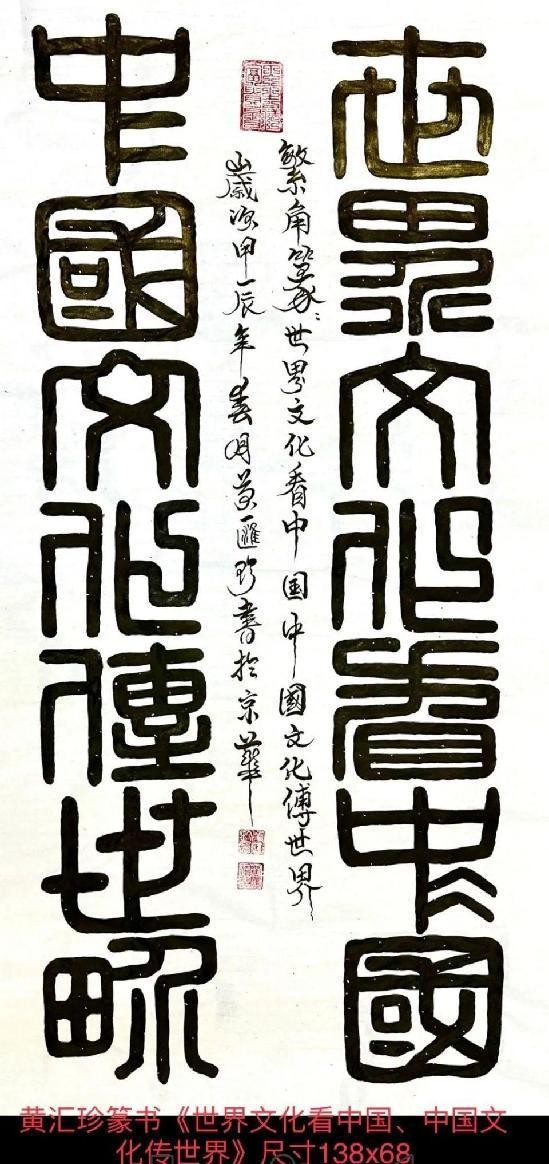 世界文化看中國
繁角篆：世界文化看中国中國文化傳世界
嵗次甲辰年春月黄匯珍書於京華
中國文化傳世界
黄汇珍篆书《世界文化看中国、中国文
化传世界》尺寸138x68